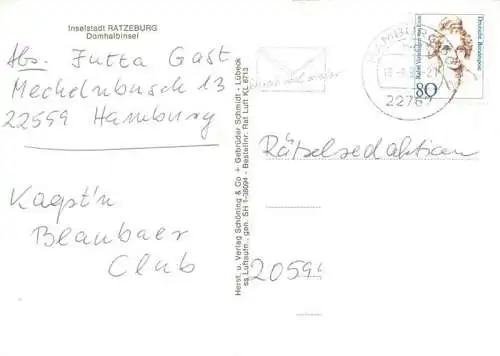 Inselstadt RATZEBURG
Domhalbinsel
Abs. Jutta Gast
Mechelnbusch 13
22599 Hamburg
Kaept'n
Blaubaer
Club
Herst. u. Verlag Schöning & Co + Gebrüder Schmidt - Lübeck
ss Luftaufn., gen. SH 1-38094 - Bestellnr. Rat Luft KL 8713
HAMBURG
2276
Deutsche Bundespost
Rahel Varnhagen von Ense
80
Rätselredaktion
20599